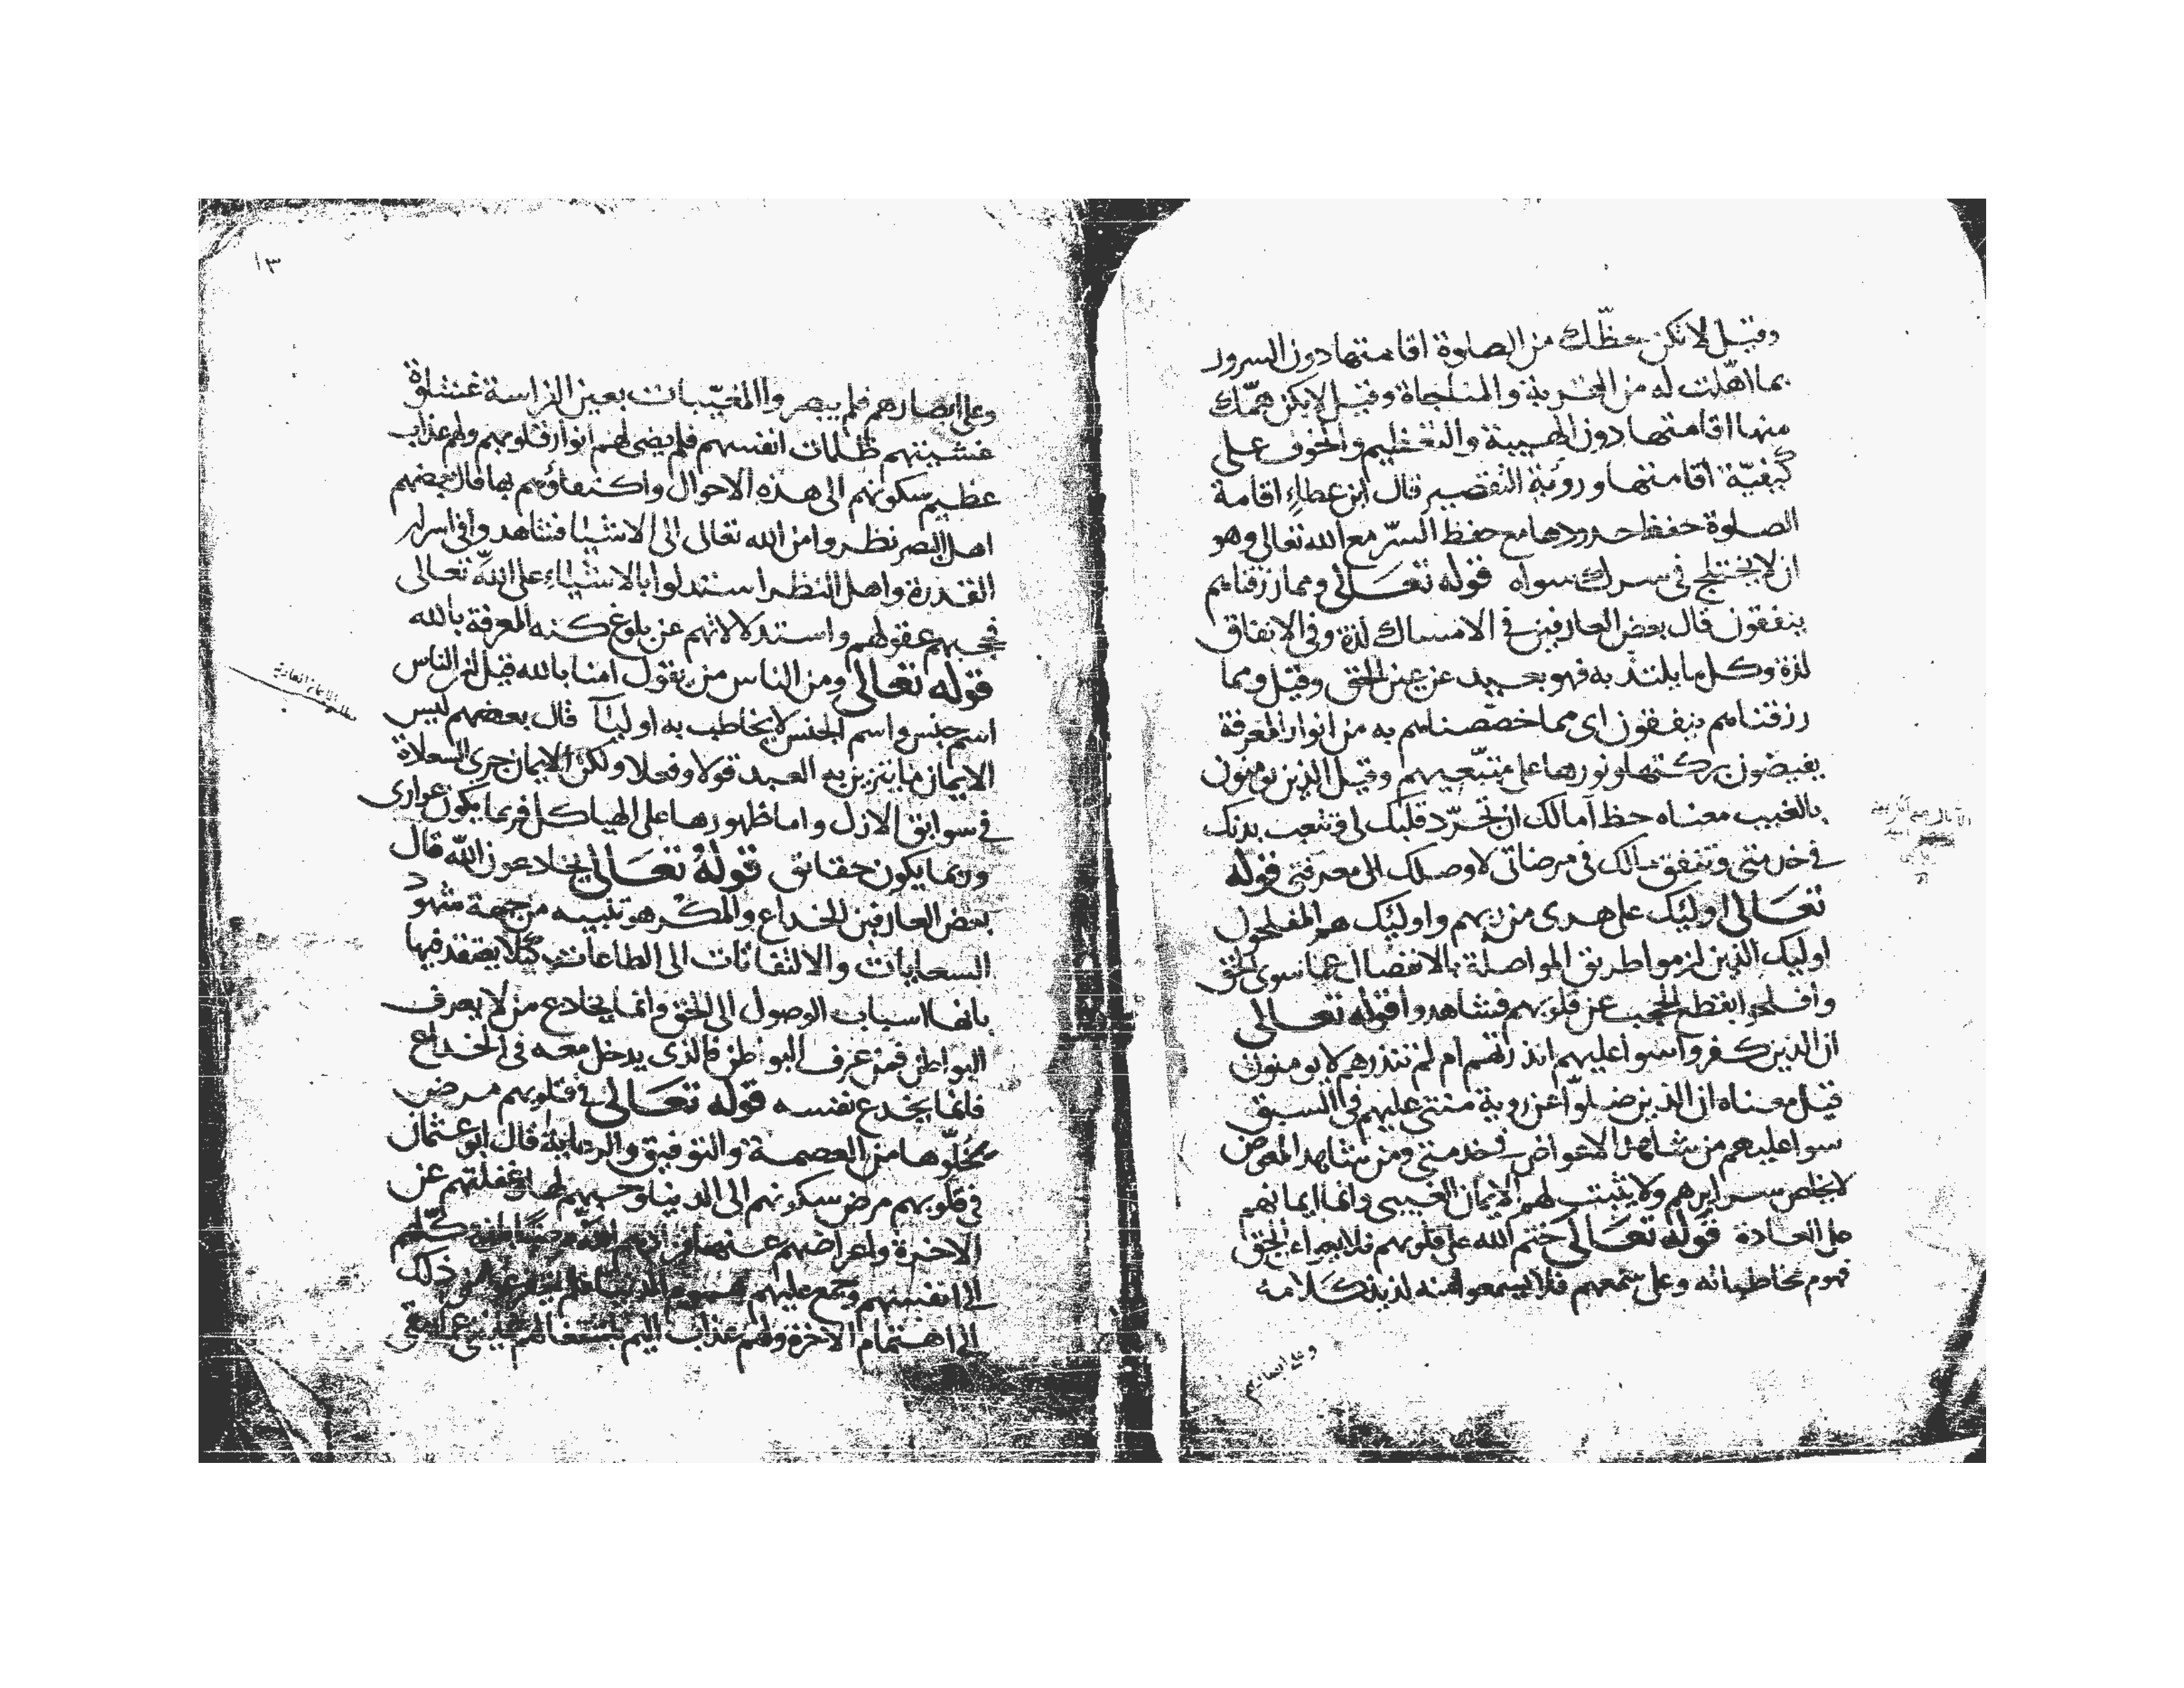 وقيل لا تكن حظّك من الصلوة اقامتها دون السرور
بما اهّلت له من القربة والمناجاة وقيل لا يكن همّك
منها اقامتها دون الهيبة والتعظيم والخوف على
كيفيّة اقامتها ورؤية التقصير قال ابن عطاء اقامة
الصلوة حفظ حدودها مع حفظ السرّ مع الله تعالى وهو
ان لا يختلج في سرك سواه قوله تعالى ومما رزقناهم
ينفقون قال بعض العارفين في الامساك لذة وفي الانفاق
لذة وكل ما يلتذ به فهو بعيد عن عين الحق وقيل ومما
رزقناهم ينفقون اى مما خصصناهم به من انوار المعرفة
يفيضون بركتها ونورها على متبّعيهم وقيل الذين يومنون
بالغيب معناه حظ آمالك ان تجرّد قلبك لي وتتعب بدنك
في خدمتي وتنفق مالك في مرضاتي لاوصلك الى معرفتي قوله
تعالى اوليك على هدى من ربهم واوليك هم المفلحون
اوليك الذين لزموا طريق المواصلة بالانفصال عما سوى الحق
وافلحوا بقطع الحجب عن قلوبهم فشاهدوا قوله تعالى
ان الذين كفروا سوا عليهم انذرتهم ام لم تنذرهم لا يومنون
قيل معناه ان الذين ضلوّا عن روية منتي عليهم في السبق
سوا عليهم من شاهد الاعواض في خدمتي ومن شاهد المعوض
لا يخلص سرايرهم ولا يثبت لهم الايمان الغيبي وانما ايمانهم
على العادة قوله تعالى ختم الله على قلوبهم فلا
فهوم مخاطباته وعلى سمعهم فلا يسمعوا منه لذيذ كلامه
وعلى ابصارهم
١٣
وعلى ابصارهم فلم يبصروا المغيّبات بعين الفراسة غشاوة
غشيتهم ظلمات انفسهم فلم يضى لهم انوار قلوبهم ولهم عذاب
عظيم سكونهم الى هذه الاحوال واكتفاؤهم بها قال بعضهم
اهل البصر نظروا من الله تعالى الى الاشيا فشاهدوا في اسرار
القدرة واهل النظر استدلوا بالاشياء على الله تعالى
فحجبهم عقولهم واستدلالاتهم عن بلوغ كنه المعرفة بالله
قوله تعالى ومن الناس من يقول امنا بالله قيل ان الناس
اسم جنس واسم الجنس لا يخاطب به اوليآ قال بعضهم ليس
الايمان ما يتزين به العبد قولا وفعلا ولكن الايمان جرى السعادة
في سوابق الازل واما ظهورها على الهياكل فربما يكون عوارى
وربما يكون حقائق قوله تعالى يخادعون الله قال
بعض العارفين الخداع والمكر هو تنبيه من جهة شهود
السعايات والالتفاتات الى الطاعات كيلا يعتقد فيها
بانها اسباب الوصول الى الحق وانما يخادع من لا يعرف
البواطن فمن عرف البواطن فالذى يدخل معه في الخداع
فانما يخدع نفسه قوله تعالى في قلوبهم مرض
بخلّوها من العصمة والتوفيق والرعاية قال ابو عثمان
في قلوبهم مرض سكونهم الى الدنيا وحبهم لها وغفلتهم عن
الاخرة واعراضهم عنها فزادهم الله مرضا بان وكّلهم
الى انفسهم وجمع عليهم هموم الدنيا ذلك
الى اهتمام الاخرة ولهم عذاب اليم